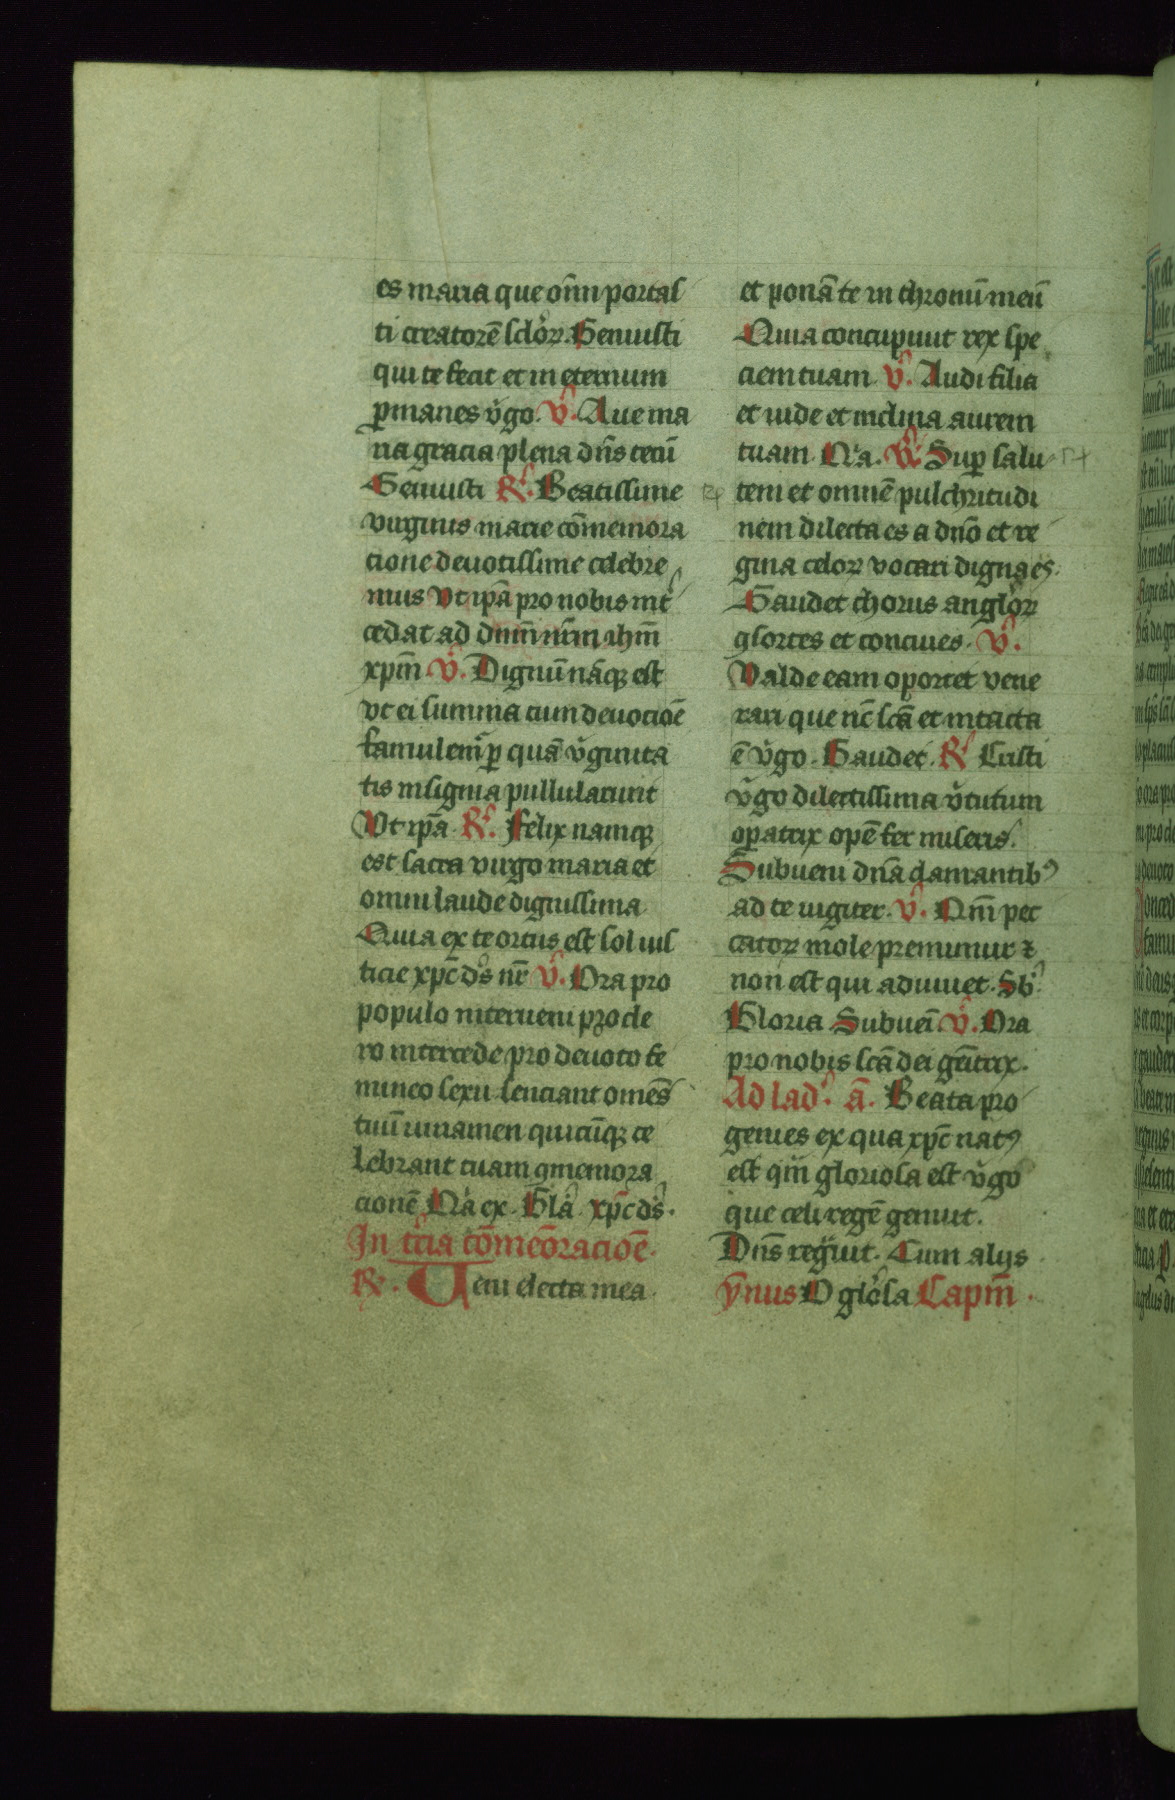 es maria que om̄i portas
ti creatorē sclor̄. Genuisti
qui te fecit et in eternum
ꝑmanes v̾go. V̾. Aue ma
ria gracia plena dn̄s tecū
Genuisti R̾. Beatissime
virginis marie cōmemora
cione deuotissime celebre
mus Vt ip̄a pro nobis int̾
cedat ad dnm̄ nr̄m ihm̄
xpm̄ V̾. Dignū nāqꝫ est
vt ei summa cum deuociōe
famulem̾ ꝑ quā v̾ginita
tis insignia pullularunt
Vt ip̄a. R̾. Felix namqꝫ
est sacra virgo maria et
omni laude dignissima
Quia ex te ortus est sol ius
ticie xpc̄ ds̾ nr̄ V̾. Ora pro
populo interueni pro cle
ro intercede pro deuoto fe
mineo sexu senciant omēs
tuū iuuamen quicūqꝫ ce
lebrant tuam ꝯmemora
cionē Q̾a ex. Gl̄a xpc̄ ds̾.
In t̾cia cōmeōracioē.
R̾. Ueni electa mea
et ponā te in thronū meū
Quia concupiuit rex spe
ciem tuam. V̾. Audi filia
et uide et inclina aurem
tuam. Q̾a. R̾. Suꝑ salu
tem et omnē pulchritudi
nem dilecta es a dn̄o et re
gina celoꝝ vocari digna es.
Gaudet chorus angloꝝ
ꝯsortes et conciues. V̾.
Valde eam oportet vene
rari que nc̄ scā et intacta
ē v̾go. Gaudet. R̾. Cristi
v̾go dilectissima v̾tutum
oꝑatrix opē fer miseris.
Subueni dn̄a clamantibꝰ
ad te iugiter. V̾. Qm̄ pec
catoꝝ mole premimur ⁊
non est qui adiuuet. Sb̾.
Gloria Subueī. V̾. Ora
pro nobis scā dei gēitrix.
Ad lad̾. ā. Beata pro
genies ex qua xpc̄ natꝰ
est qm̄ gloriosa est v̾go
que celi regē genuit.
Dn̄s regͥuit. Cum alijs
ȳnus O glo̾sa Capm̄.